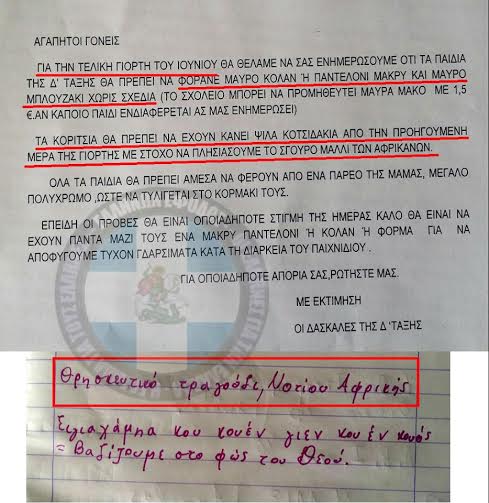 ΑΓΑΠΗΤΟΙ ΓΟΝΕΙΣ
ΓΙΑ ΤΗΝ ΤΕΛΙΚΗ ΓΙΟΡΤΗ ΤΟΥ ΙΟΥΝΙΟΥ ΘΑ ΘΕΛΑΜΕ ΝΑ ΣΑΣ ΕΝΗΜΕΡΩΣΟΥΜΕ ΟΤΙ ΤΑ ΠΑΙΔΙΑ
ΤΗΣ Δ' ΤΑΞΗΣ ΘΑ ΠΡΕΠΕΙ ΝΑ ΦΟΡΑΝΕ ΜΑΥΡΟ ΚΟΛΑΝ Ή ΠΑΝΤΕΛΟΝΙ ΜΑΚΡΥ ΚΑΙ ΜΑΥΡΟ
ΜΠΛΟΥΖΑΚΙ ΧΩΡΙΣ ΣΧΕΔΙΑ (ΤΟ ΣΧΟΛΕΙΟ ΜΠΟΡΕΙ ΝΑ ΠΡΟΜΗΘΕΥΤΕΙ ΜΑΥΡΑ ΜΑΚΟ ΜΕ 1,5
€.ΑΝ ΚΑΠΟΙΟ ΠΑΙΔΙ ΕΝΔΙΑΦΕΡΕΤΑΙ ΑΣ ΜΑΣ ΕΝΗΜΕΡΩΣΕΙ)
ΤΑ ΚΟΡΙΤΣΙΑ ΘΑ ΠΡΕΠΕΙ ΝΑ ΕΧΟΥΝ ΚΑΝΕΙ ΨΙΛΑ ΚΟΤΣΙΔΑΚΙΑ ΑΠΟ ΤΗΝ ΠΡΟΗΓΟΥΜΕΝΗ
ΜΕΡΑ ΤΗΣ ΓΙΟΡΤΗΣ ΜΕ ΣΤΟΧΟ ΝΑ ΠΛΗΣΙΑΣΟΥΜΕ ΤΟ ΣΓΟΥΡΟ ΜΑΛΛΙ ΤΩΝ ΑΦΡΙΚΑΝΩΝ.
ΟΛΑ ΤΑ ΠΑΙΔΙΑ ΘΑ ΠΡΕΠΕΙ ΑΜΕΣΑ ΝΑ ΦΕΡΟΥΝ ΑΠΟ ΕΝΑ ΠΑΡΕΟ ΤΗΣ ΜΑΜΑΣ, ΜΕΓΑΛΟ
ΠΟΛΥΧΡΩΜΟ ,ΩΣΤΕ ΝΑ ΤΥΛΙΓΕΤΑΙ ΣΤΟ ΚΟΡΜΑΚΙ ΤΟΥΣ.
ΕΠΕΙΔΗ ΟΙ ΠΡΟΒΕΣ ΘΑ ΕΙΝΑΙ ΟΠΟΙΑΔΗΠΟΤΕ ΣΤΙΓΜΗ ΤΗΣ ΗΜΕΡΑΣ ΚΑΛΟ ΘΑ ΕΙΝΑΙ ΝΑ
ΕΧΟΥΝ ΠΑΝΤΑ ΜΑΖΙ ΤΟΥΣ ΕΝΑ ΜΑΚΡΥ ΠΑΝΤΕΛΟΝΙ Ή ΚΟΛΑΝ Ή ΦΟΡΜΑ ΓΙΑ ΝΑ
ΑΠΟΦΥΓΟΥΜΕ ΤΥΧΟΝ ΓΔΑΡΣΙΜΑΤΑ ΚΑΤΑ ΤΗ ΔΙΑΡΚΕΙΑ ΤΟΥ ΠΑΙΧΝΙΔΙΟΥ .
ΓΙΑ ΟΠΟΙΑΔΗΠΟΤΕ ΑΠΟΡΙΑ ΣΑΣ,ΡΩΤΗΣΤΕ ΜΑΣ.
ΜΕ ΕΚΤΙΜΗΣΗ
ΟΙ ΔΑΣΚΑΛΕΣ ΤΗΣ Δ 'ΤΑΞΗΣ
Θρησκευτικό τραγούδι, Νοτίου Αφρικής
Σιγιαχάμπα κου κουέν γιεν κου έν κουός
= Βαδίζουμε στο φώς του Θεού.